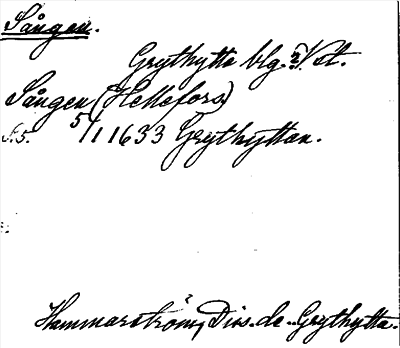 Sången.
Grythytte blg. Vstm.
Sången (Hellefors)
s. 5. 5/1 1633 Grythyttan.
Hammarström, Diss. de Grythytta.